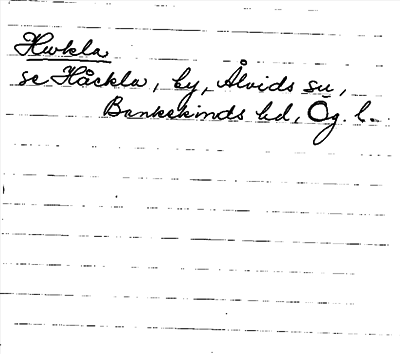 Hwkla
se Håckla, by, Ålvids su,
Bankekinds hd, Ög. l.